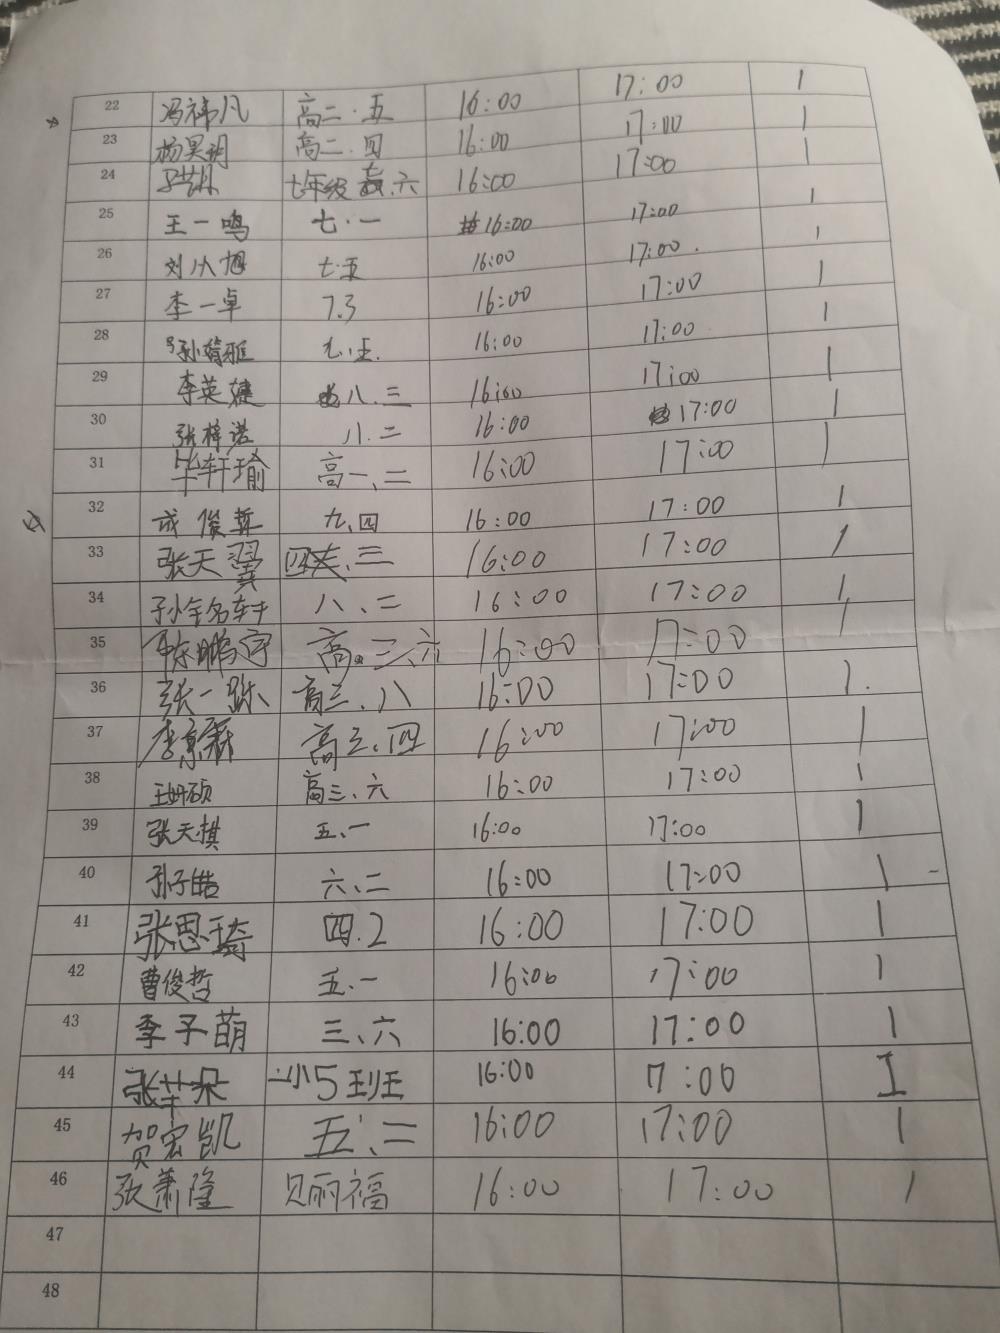 22 冯祎凡 高二.五 16:00 17:00 1
23 杨昊玥 高二.四 16:00 17:00 1
24 七年级 六 16:00 17:00 1
25 王一鸣 七.一 16:00 17:00 1
26 刘 旭 七.五 16:00 17:00. 1
27 李一卓 7.3 16:00 17:00 1
28 孙 雅 九.五. 16:00 17:00 1
29 李英婕 八.三 16:00 17:00 1
30 张梓诺 八.二 16:00 17:00 1
31 毕轩瑜 高一、二 16:00 17:00 1
32 成俊哲 九.四 16:00 17:00 1
33 张天翼 三 16:00 17:00 1
34 孙铭轩 八、二 16:00 17:00 1
35 陈鹏宇 高.三、六 16:00 17:00 1
36 张一跃 高三、八 16:00 17:00 1.
37 李京霖 高三、四 16:00 17:00 1
38 王妍硕 高三、六 16:00 17:00 1
39 张天棋 五、一 16:00 17:00 1
40 孙子皓 六、二 16:00 17:00 1
41 张思琦 四.2 16:00 17:00 1
42 曹俊哲 五.一 16:00 17:00 1
43 李子萌 三、六 16:00 17:00 1
44 张芊朵 一小5班 16:00 17:00 1
45 贺宏凯 五、二 16:00 17:00 1
46 张萧隆 贝丽福 16:00 17:00 1
47
48